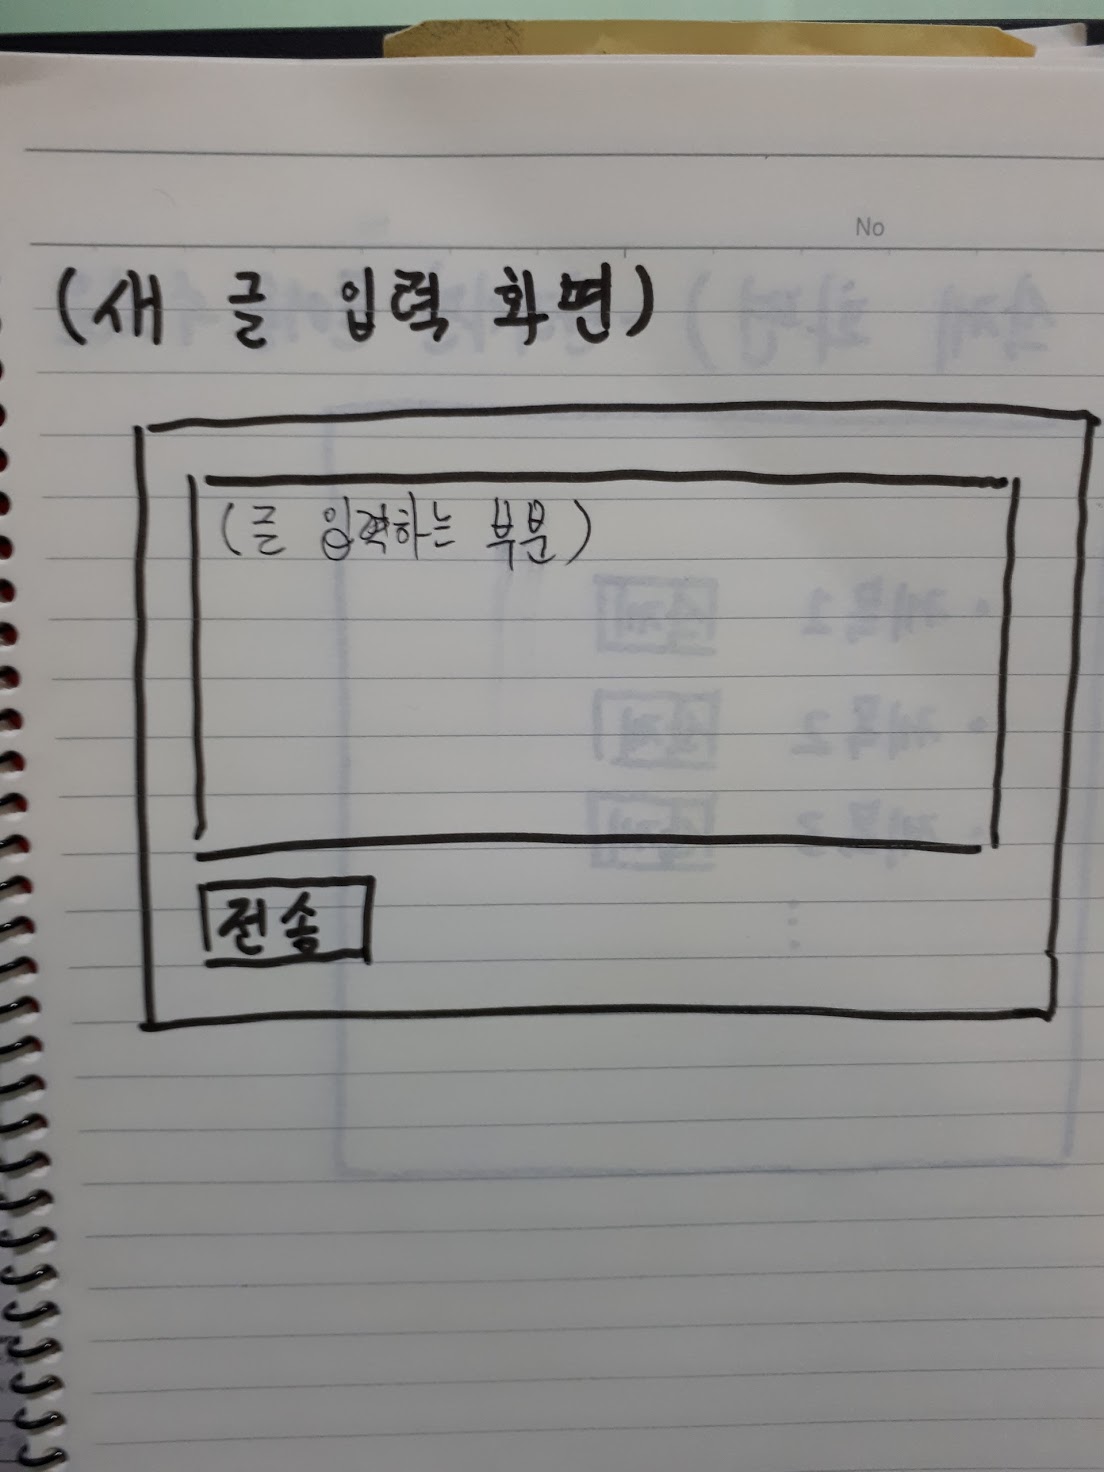 No
(새 글 입력 화면)
(글 입력하는 부분)
전송